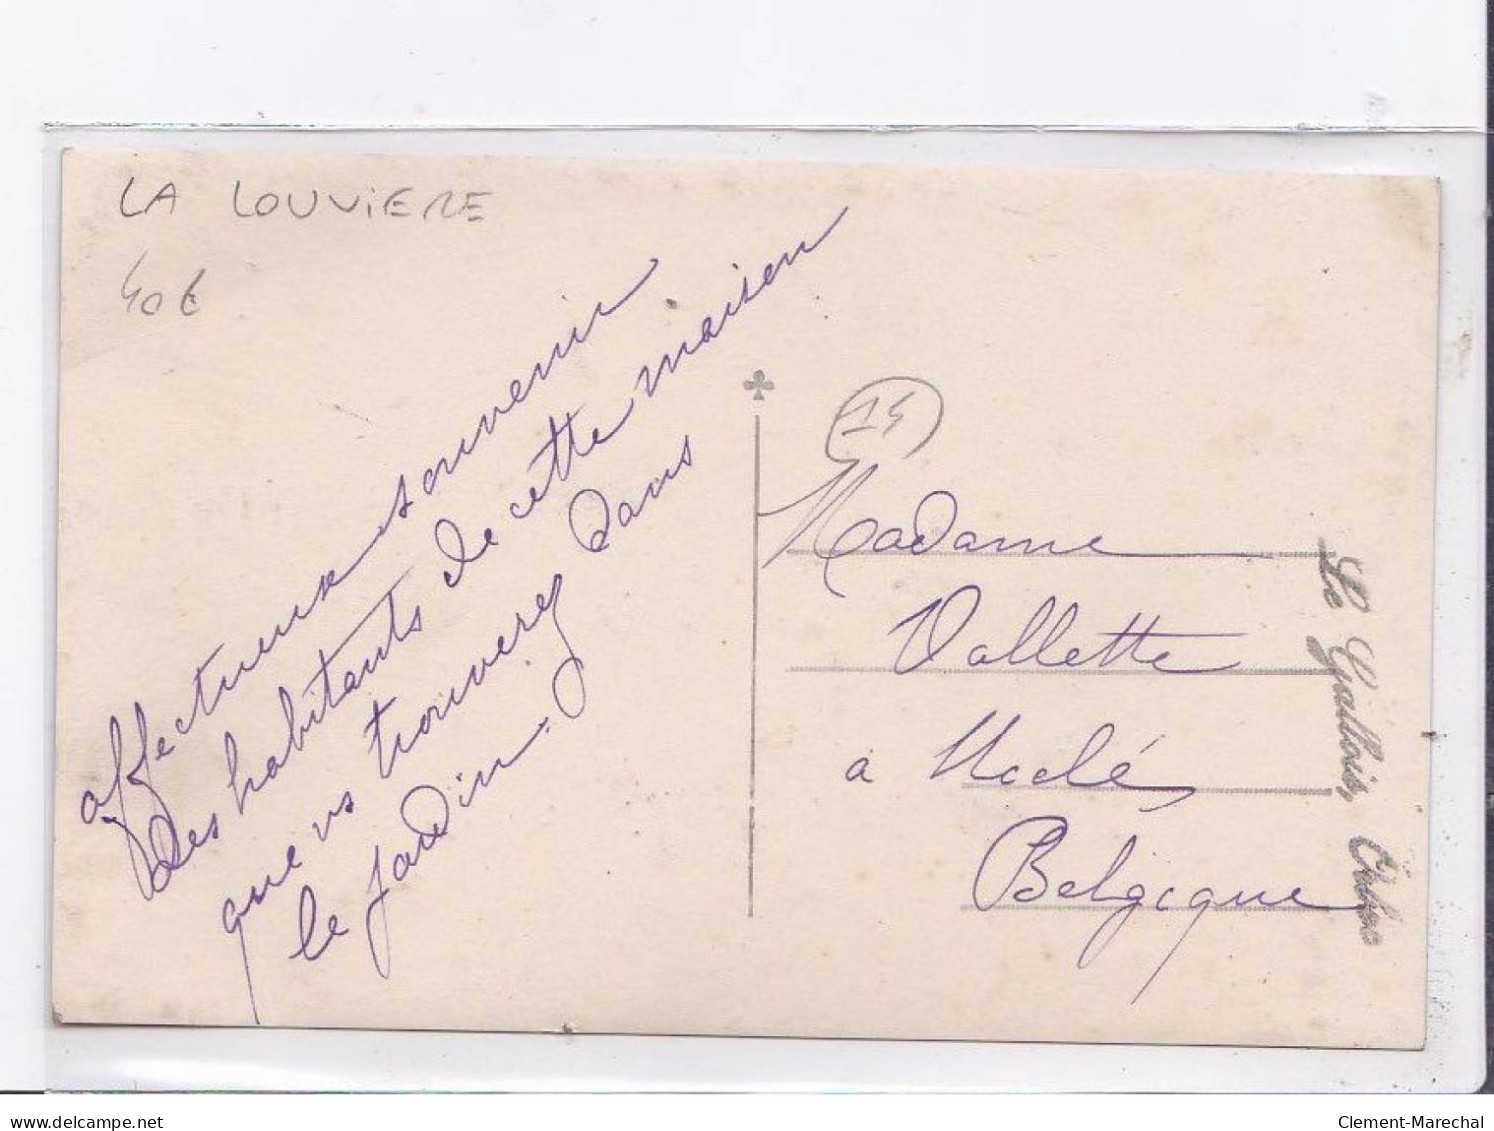 LA LOUVIERE
40€
affectueux souvenir
des habitants de cette maison
que vs trouverez dans
le jardin.
14
Madame
Vallette
à
Belgique
Le Gallois,
delcampe.net
Clement-Marechal